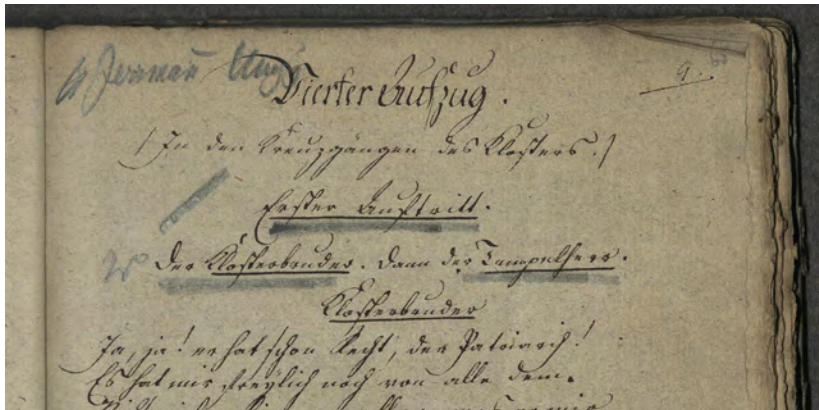 9.
Vierter Aufzug.
/ In den Kreuzgängen des Klosters. /
Erster Auftritt.
Der Klosterbruder. Dann der Tempelherr.
Klosterbruder
Ja, ja! er hat schon Recht, der Patriarch!
Es hat mir freylich noch von alle dem.